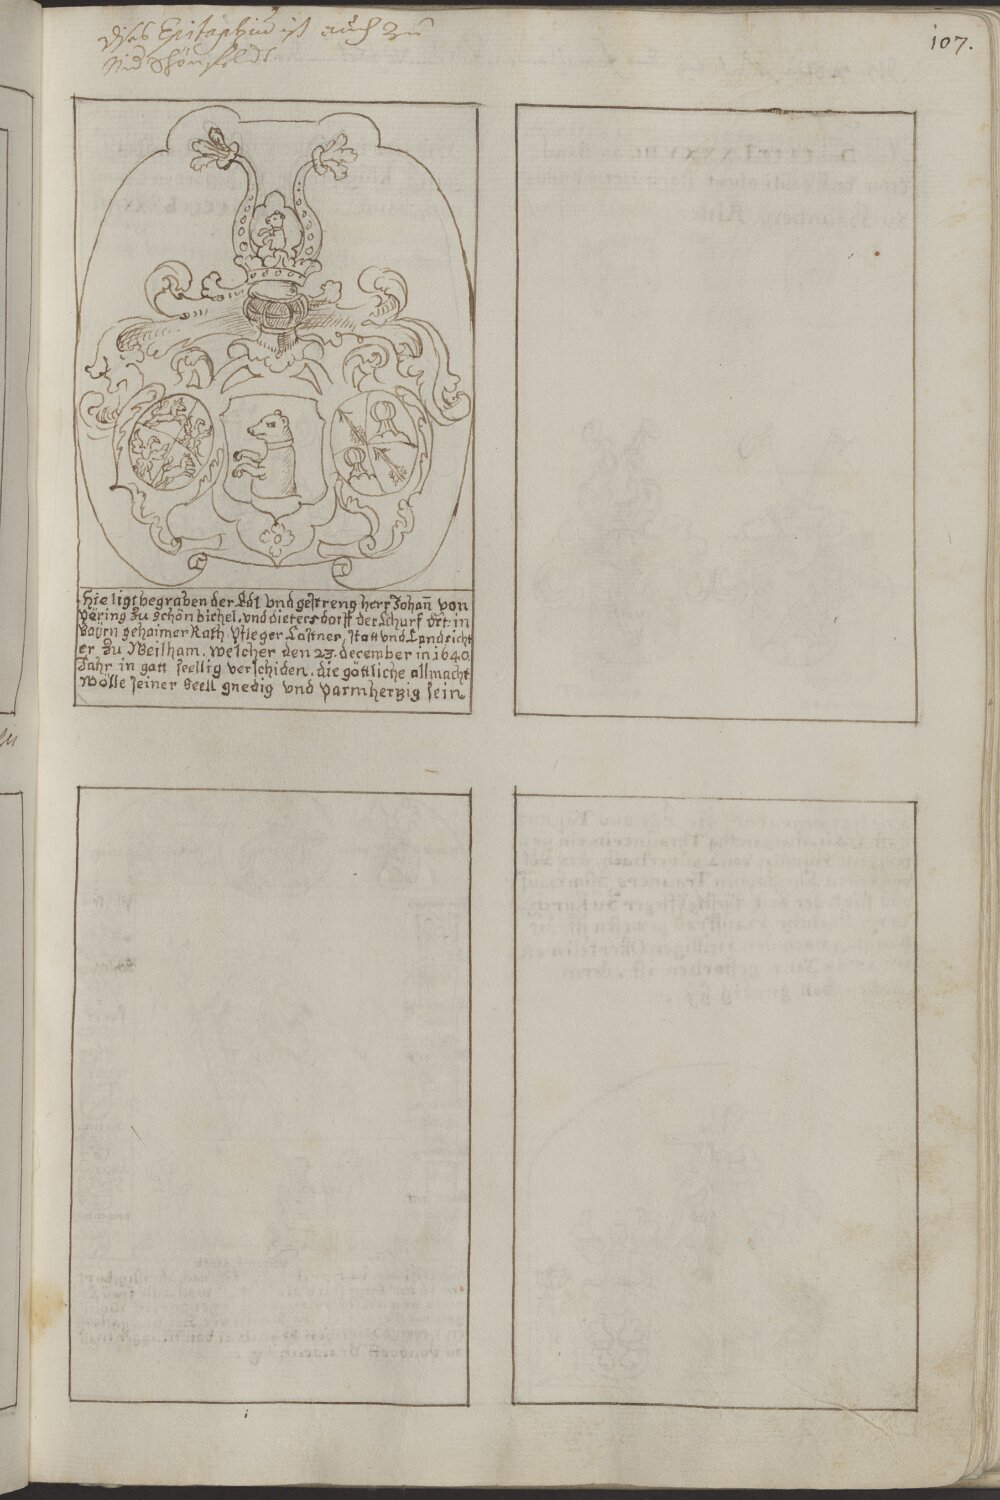 Dises Epitaphiū ist auch zū
Nid Schönfeldt.
107.
Hie ligt begraben der Edl vnd gestreng herr Johañ von
Pöring zu schön bichel. vnd dietersdorff der churf drt: in
Bayrn gehaimer Rath, Pfleger Castner, statt vnd Landricht
er zu Weilham. welcher den 23. december in 1640.
Jahr in gatt seellig verschiden. die göttliche allmacht
wölle seiner Seell gnedig vnd parmhertzig sein